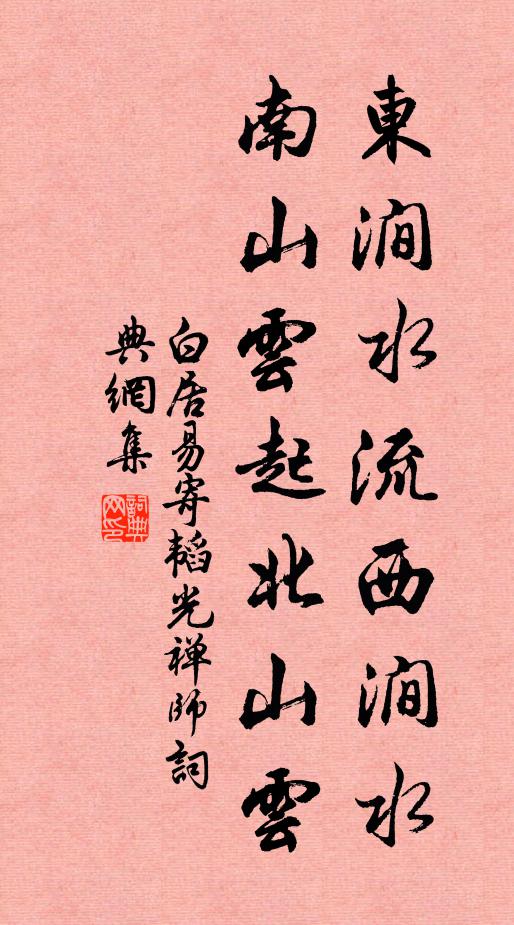 東澗水流西澗水
南山雲起北山雲
白居易寄韜光禅師詞
典網集
詞典网印